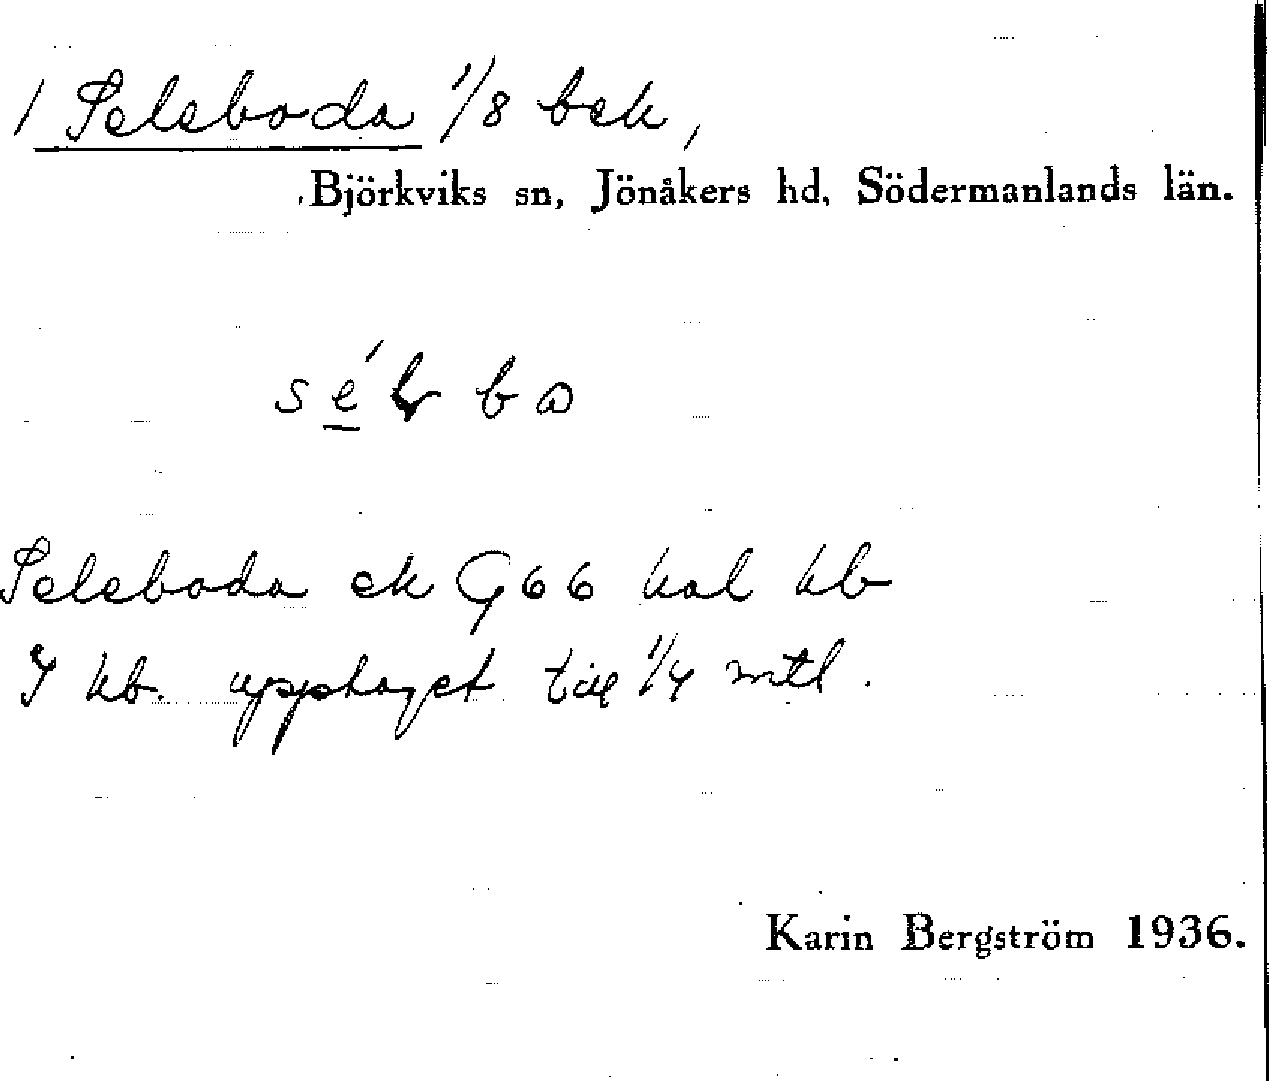 1 Seleboda 1/8 bek,
Björkviks sn, Jönåkers hd, Södermanlands län.
Seleboda ek G66 kal kb
I kb. upptaget till 1/4 mtl.
Karin Bergström 1936.